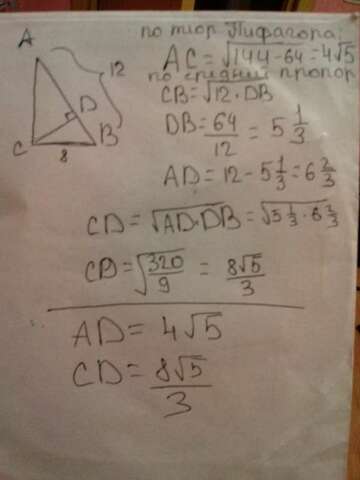 по теор Пифагора:
AC = √144-64 = 4√5
по средний пропор
CB = √12·DB
DB = 64/12 = 5 1/3
AD = 12 - 5 1/3 = 6 2/3
CD = √AD·DB = √5 1/3 · 6 2/3
CD = √320/9 = 8√5/3
AD = 4√5
CD = 8√5/3
A
12
D
C
B
8